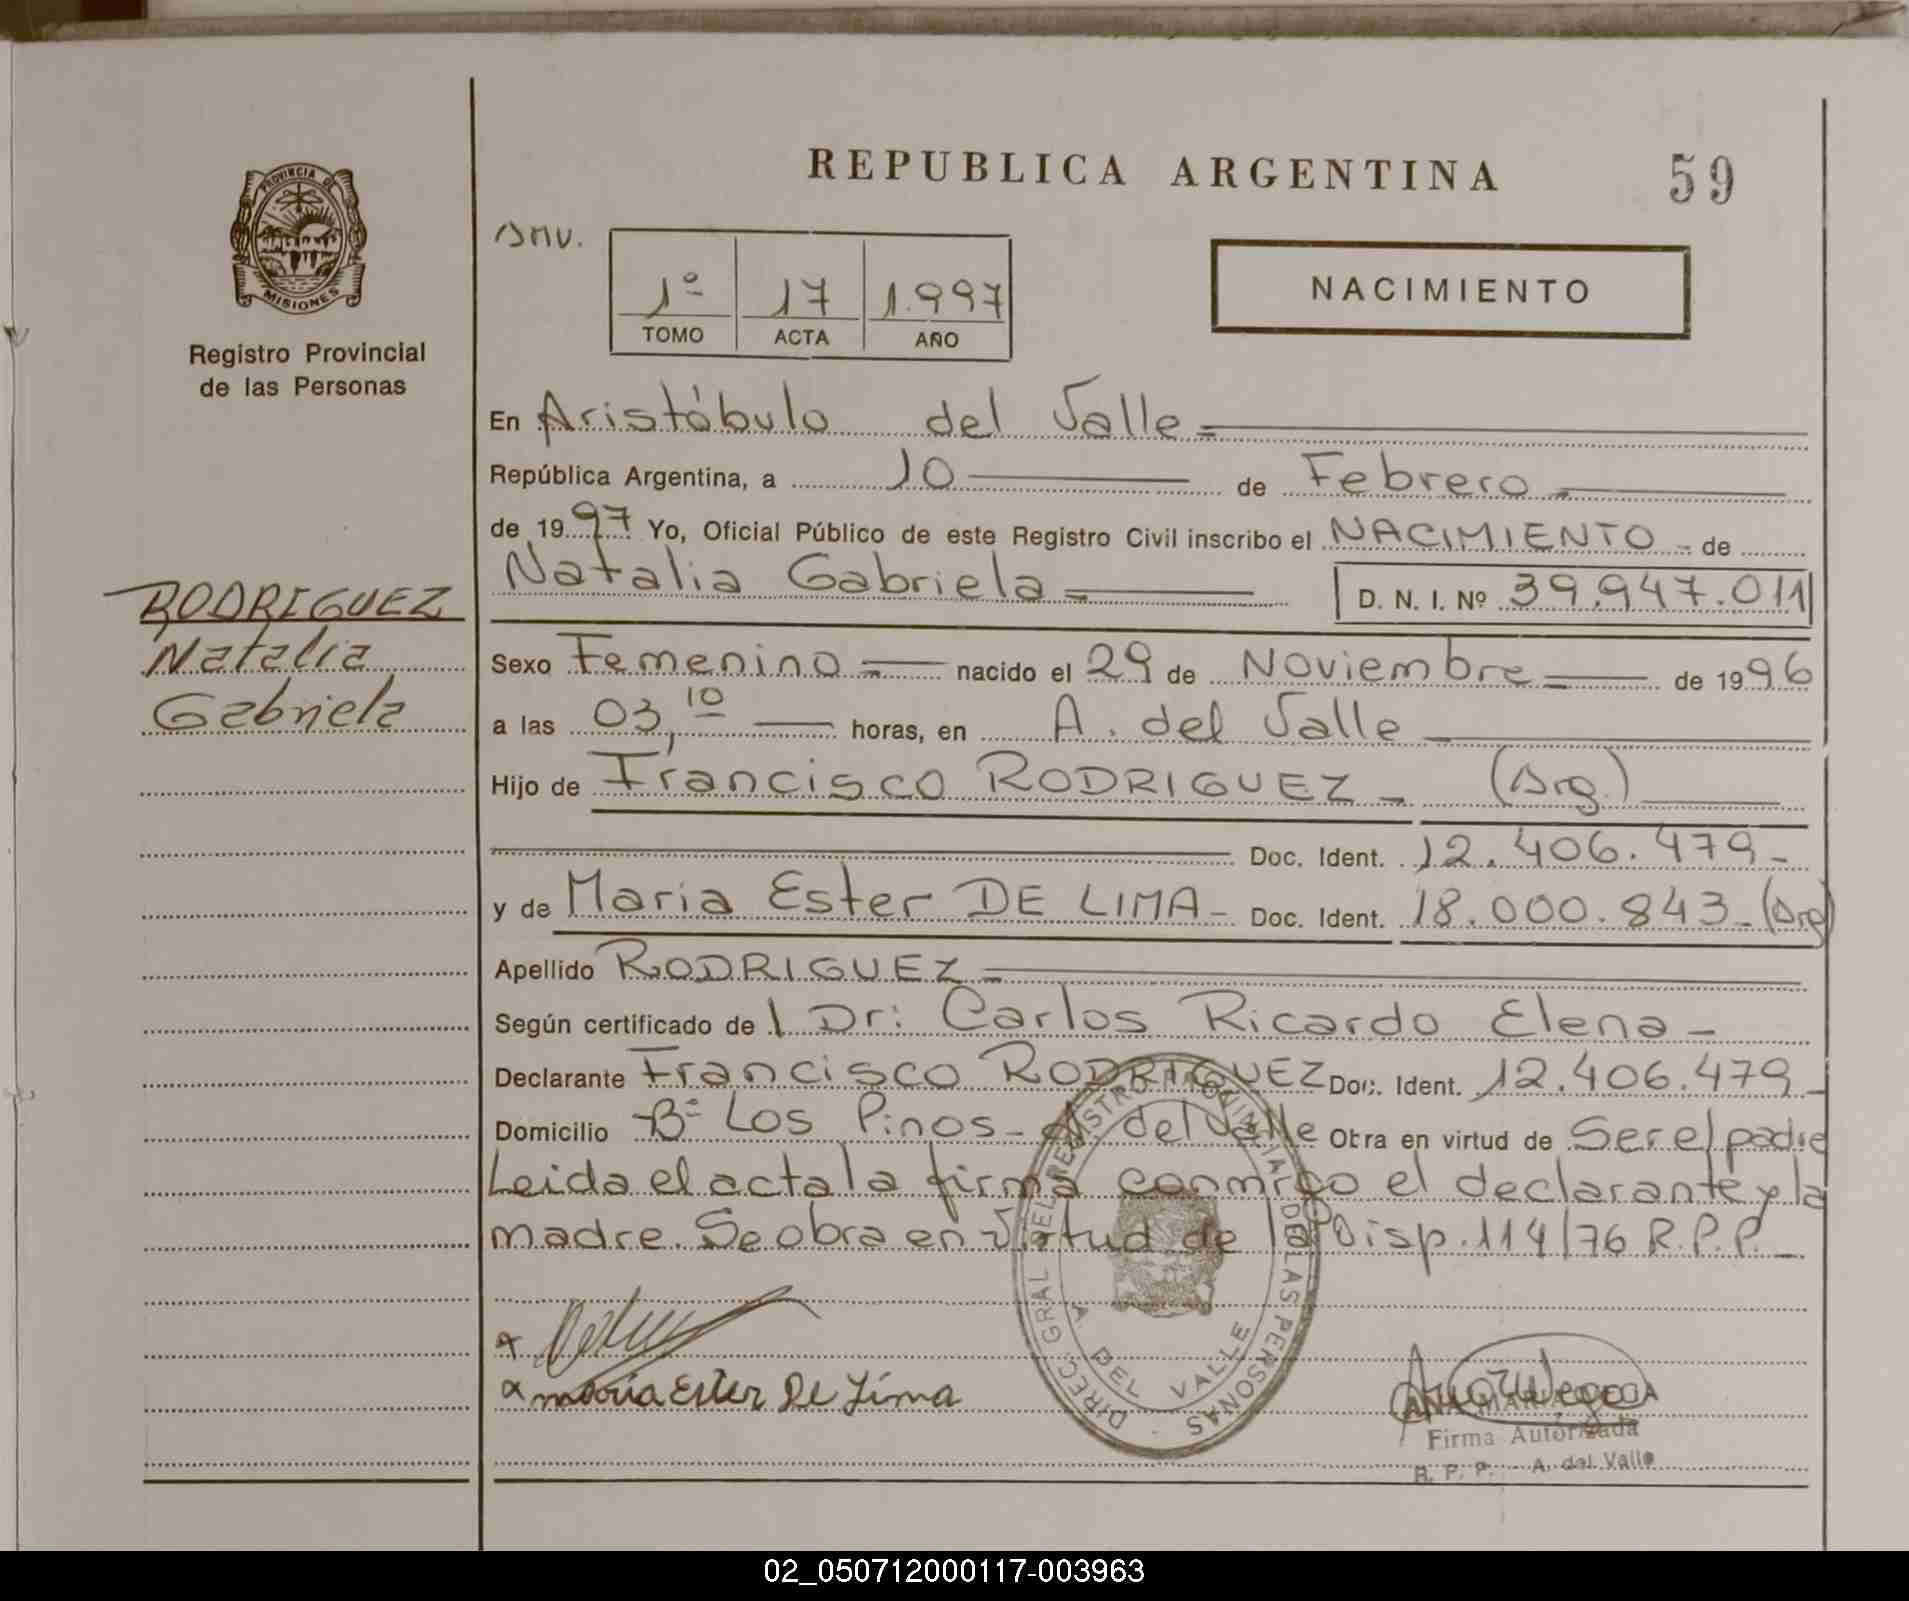 REPUBLICA ARGENTINA
59
PROVINCIA DE
MISIONES
Registro Provincial
de las Personas
1º 17 1.997
TOMO ACTA AÑO
NACIMIENTO
En Aristóbulo del Valle
República Argentina, a 10 de Febrero
de 1997 Yo, Oficial Público de este Registro Civil inscribo el NACIMIENTO de
Natalia Gabriela D. N. I. Nº 39.947.011
RODRIGUEZ
Natalia
Gabriela
Sexo Femenino nacido el 29 de Noviembre de 1996
a las 03,10 horas, en A. del Valle
Hijo de Francisco RODRIGUEZ (Arg.)
Doc. Ident. 12.406.479
y de Maria Ester DE LIMA Doc. Ident. 18.000.843 (Arg)
Apellido RODRIGUEZ
Según certificado de l Dr: Carlos Ricardo Elena
Declarante Francisco RODRIGUEZ Doc. Ident. 12.406.479
Domicilio Bº Los Pinos - A del Valle Obra en virtud de Ser el padre
Leida el acta la firma conmigo el declarante y la
madre. Se obra en Virtud de la Disp. 114/76 R.P.P.
DIREC. GRAL DEL REGISTRO PROVINCIAL DE LAS PERSONAS
A. DEL VALLE
x
x maria Ester De Lima
ANA MARIA
Firma Autorizada
R. P. P. - A. del Valle
02_050712000117-003963